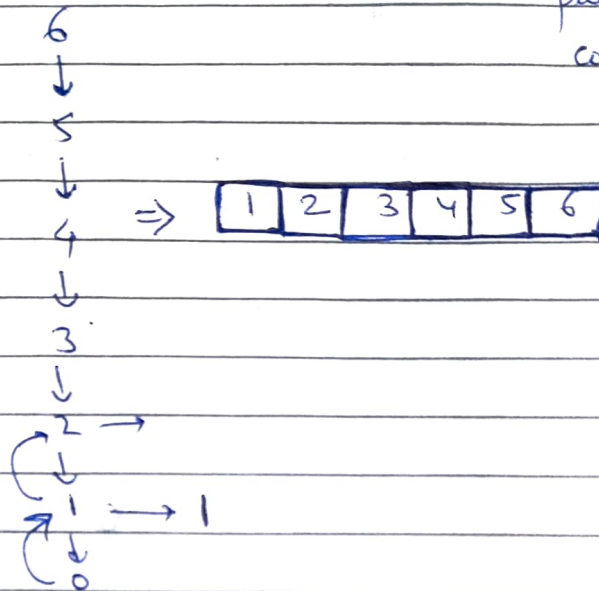 6
↓
5
↓
4 ⇒ 1 2 3 4 5 6
↓
3
↓
2 →
↓
1 → 1
↓
0